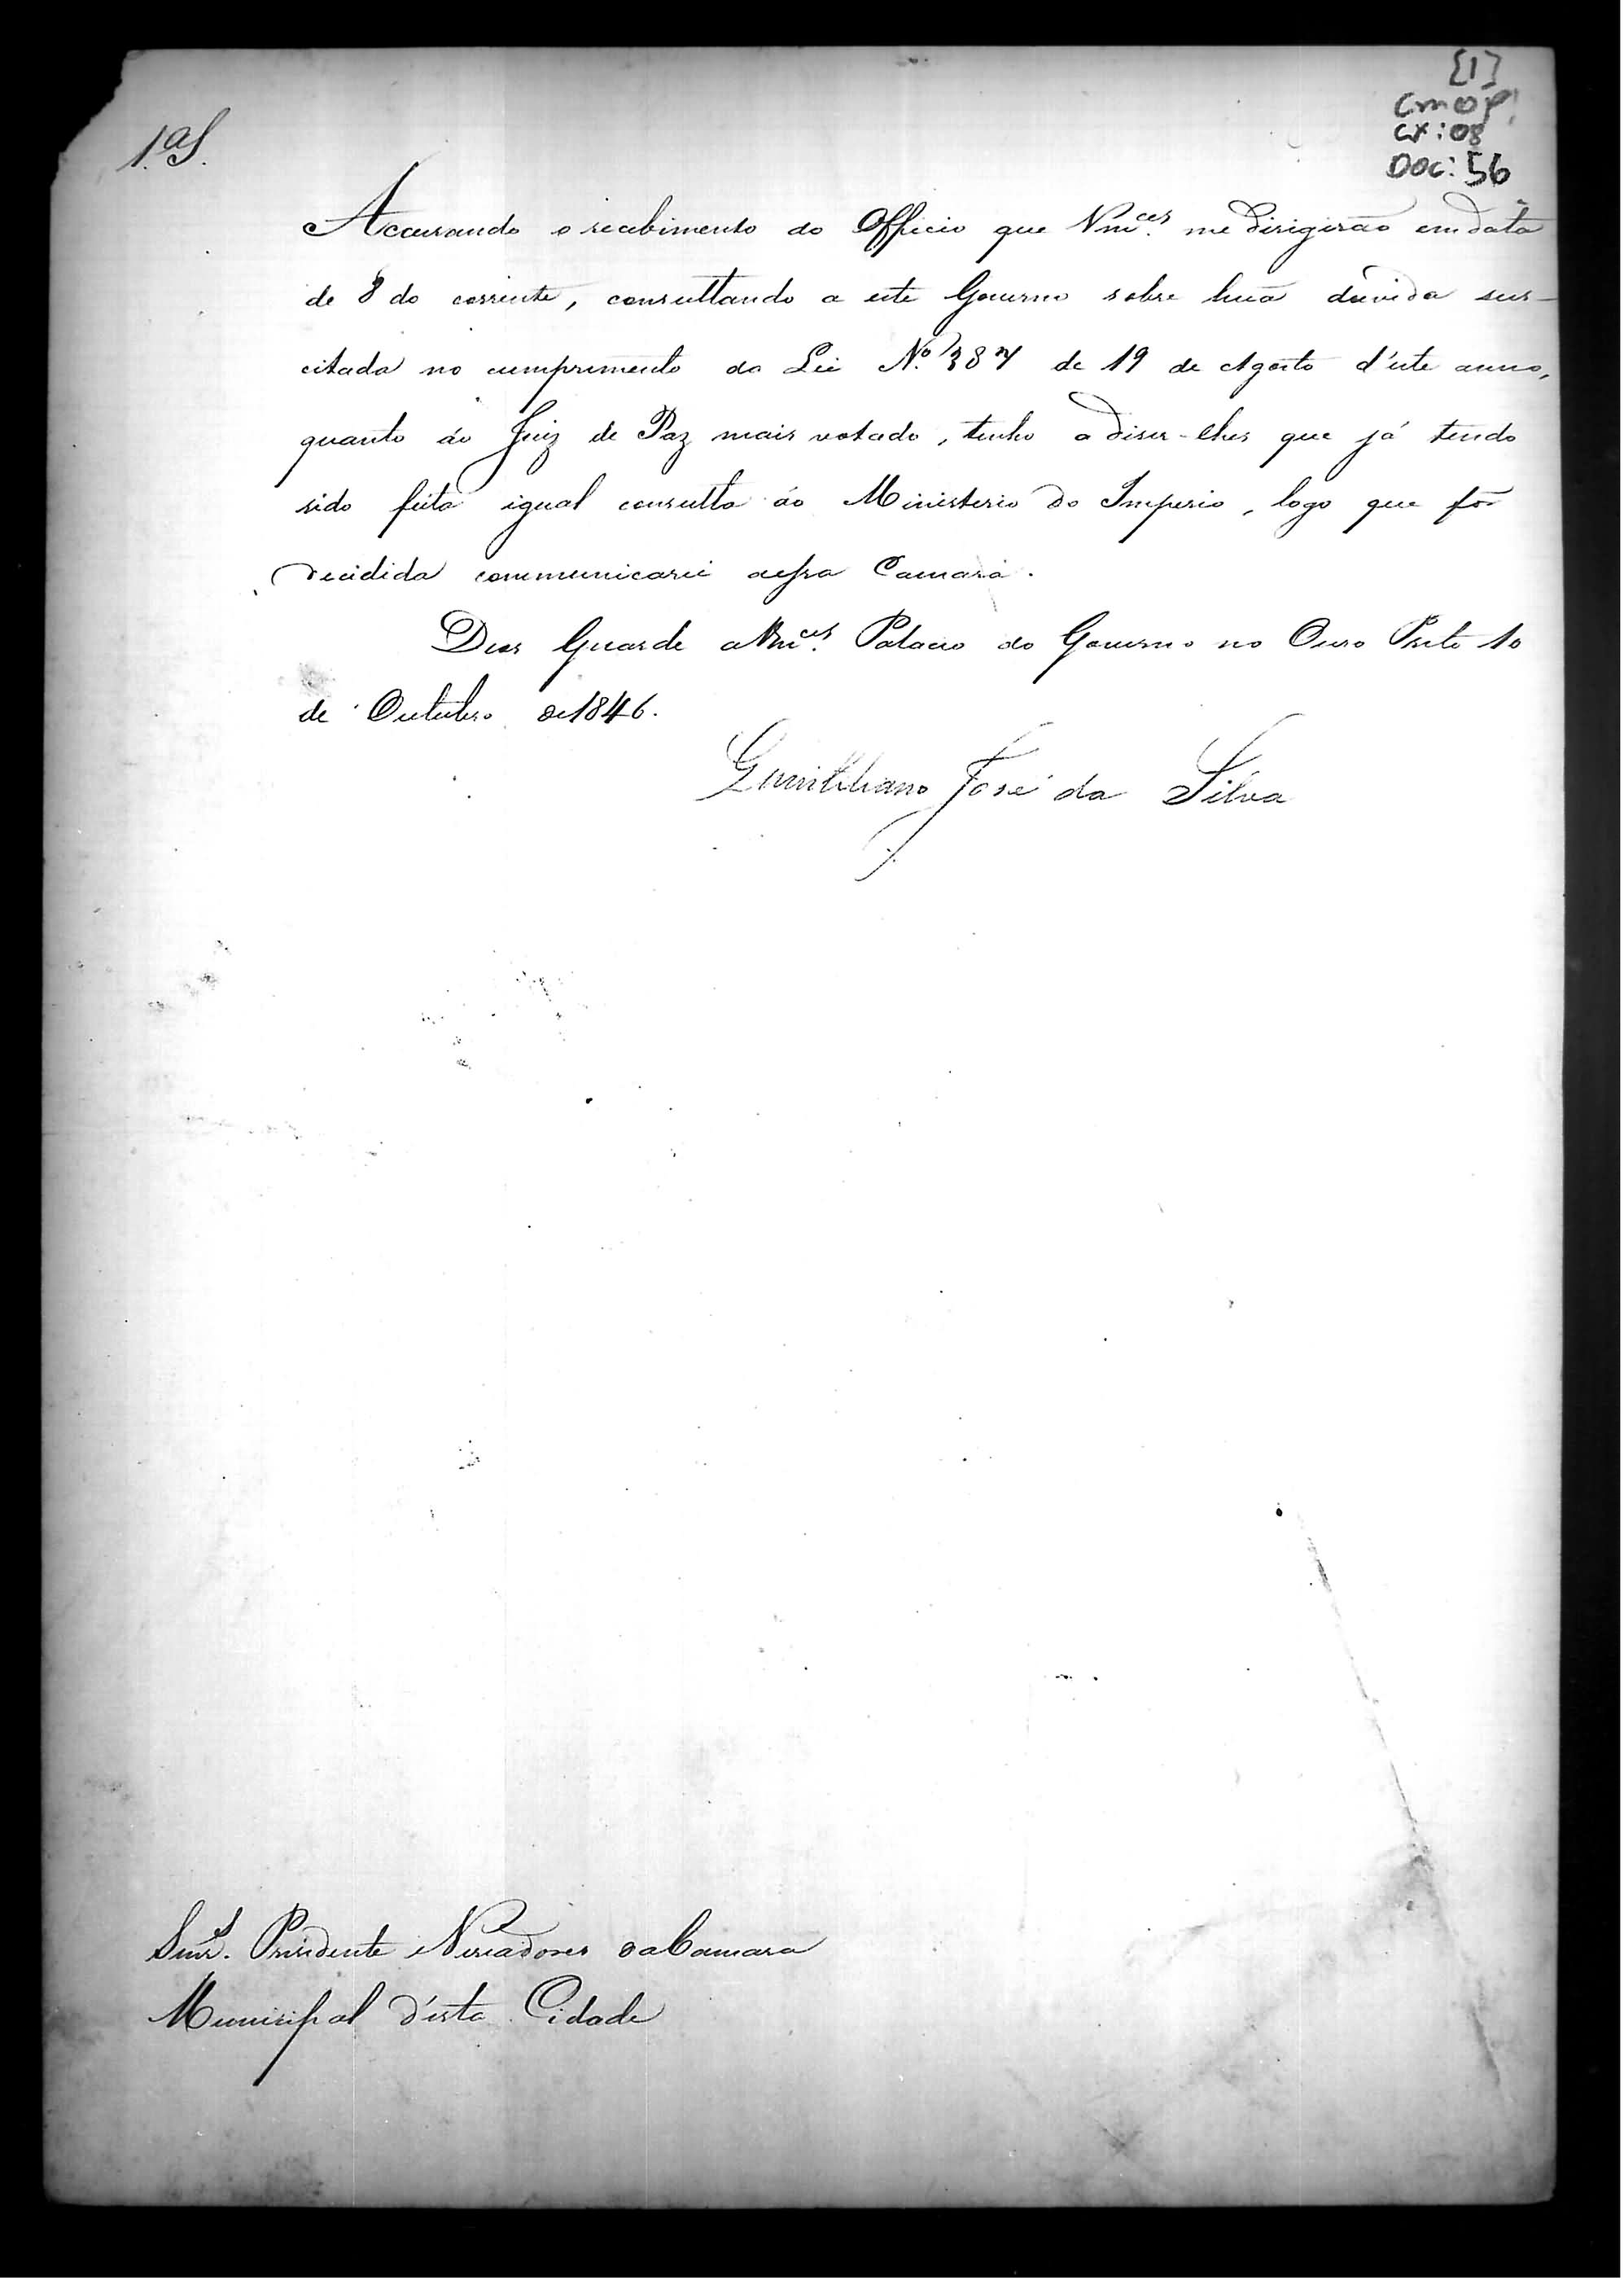 [1]
CMOP
CX: 08
DOC: 56
1.ª S.
Accusando o recebimento do Officio que Vm.ces me dirigirão em data
de 8 do corrente, consultando a este Governo sobre huã duvida sus-
citada no cumprimento da Lei N.º 387 de 19 de Agosto d'este anno,
quanto áo Juiz de Paz mais votado, tenho a diser-lhes que já tendo
sido feita igual consulta áo Ministerio do Imperio, logo que fôr
decidida communicarei a essa Camara.
Deos Guarde a Vm.ces Palacio do Governo no Ouro Preto 10
de Outubro de 1846.
José da Silva
Snr.s Presidente e Vereadores da Camara
Municipal d'esta Cidade